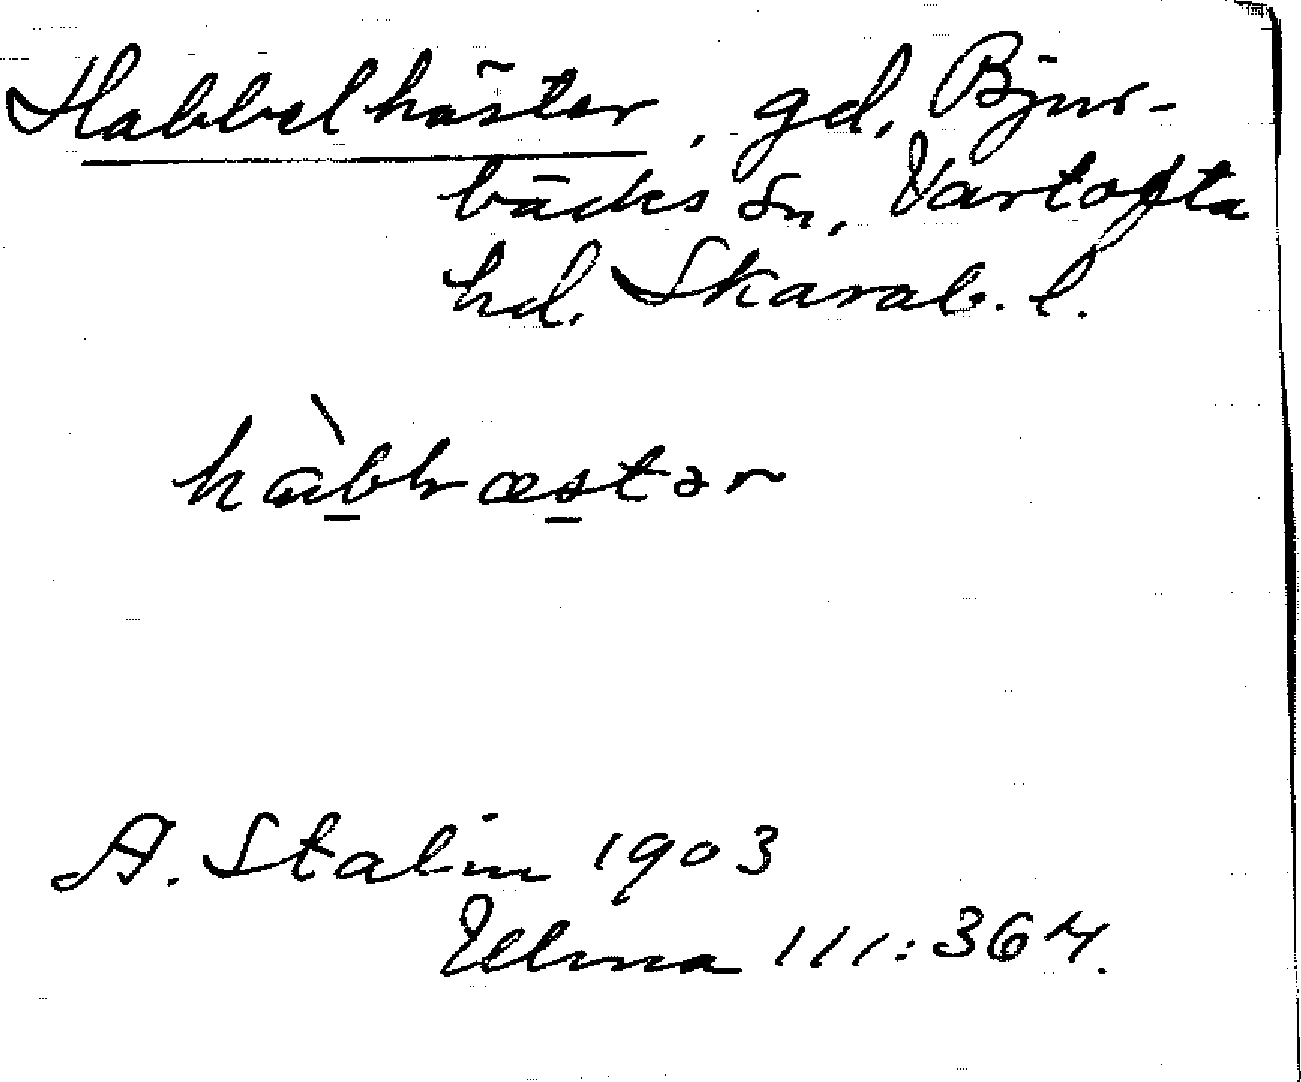 Habbelhäster, gd, Bjur-
bäcks sn, Vartofta
hd. Skarab. l.
hàbbræstər
A. Stalin 1903
Ulma 111:364.